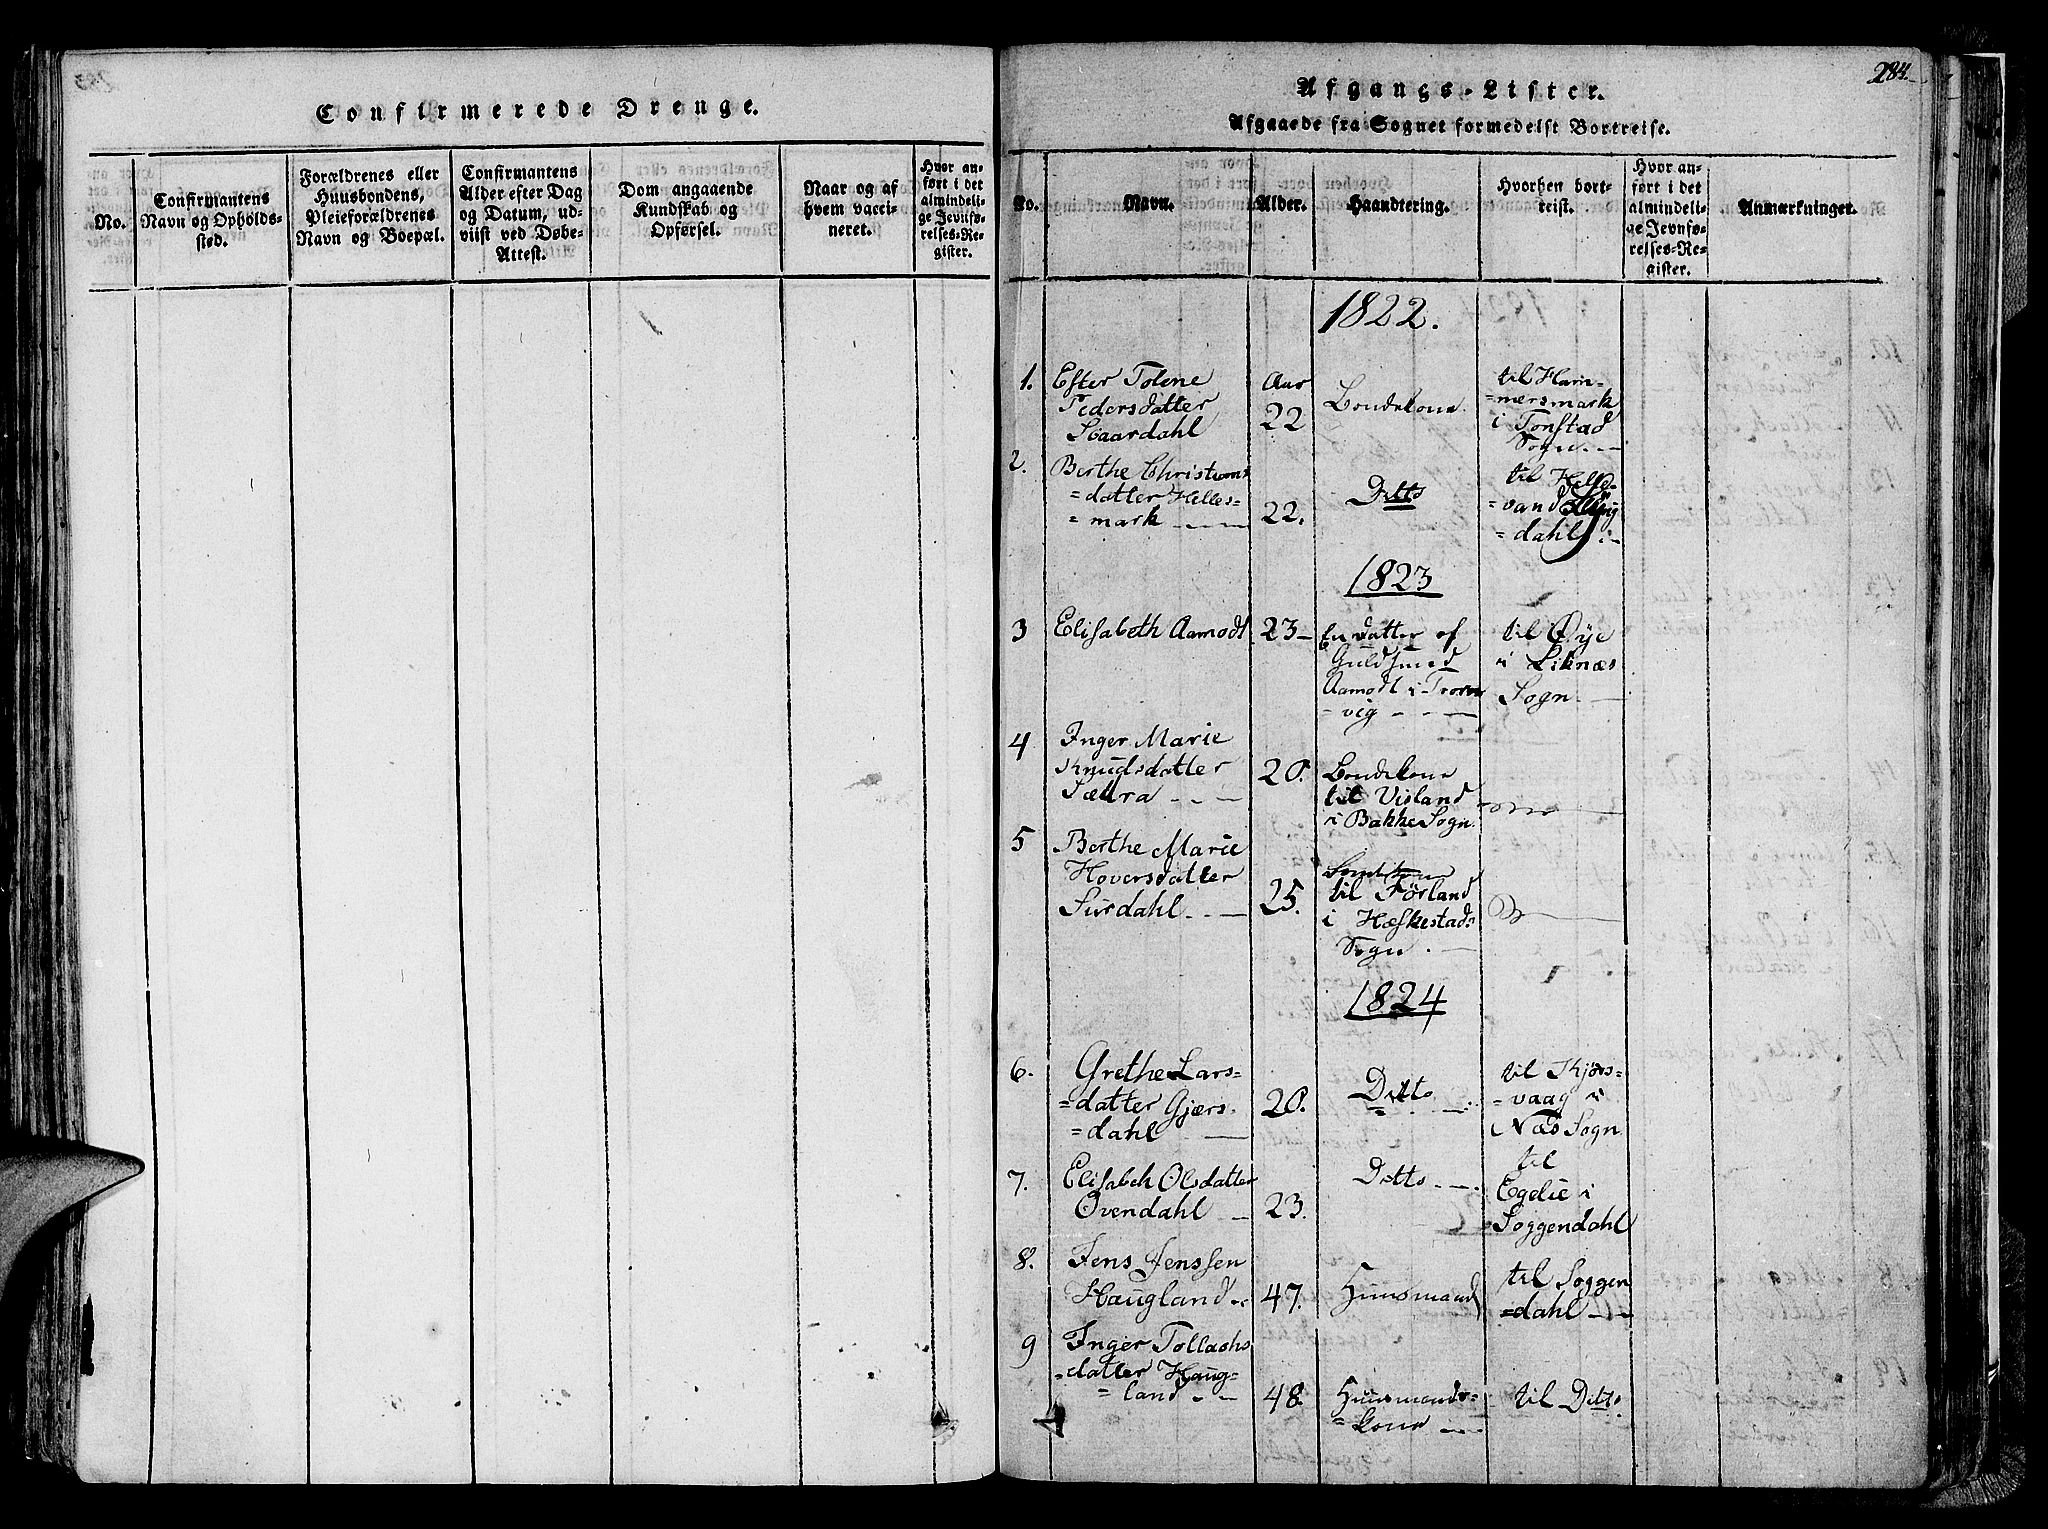 Confirmerede Drenge.
No.
Confirmantens
Navn og Opholds-
sted.
Forældrenes eller
Huusbondens,
Pleieforældrenes
Navn og Boepæl.
Confirmantens
Alder efter Dag
og Datum, ud-
viist ved Døbe-
Attest.
Dom angaaende
Kundskab og
Opførsel.
Naar og af
hvem vacci-
neret.
Hvor an-
ført i det
almindeli-
ge Jevnfø-
relses-Re-
gister.
284.
Afgangs-Lister.
Afgaaede fra Sognet formedelst Bortreise.
No.
Navn.
Alder.
Haandtering.
Hvorhen bort-
reist.
Hvor an-
ført i det
almindeli-
ge Jevnfø-
relses-Re-
gister.
Anmærkninger.
1822.
1.
Ester Tolene
Pedersdatter
Svaardahl
Aar
22
Bondekone
til Ham-
=mersmark
i Tonstad
Sogn
2.
Berthe Christians
=datter Helles-
=mark
22.
Ditto
til
=vand
=dahl
1823
3
Elisabeth Aamodt
23
En datter af
Guldsmed
Aamodt i
=vig
til Øye
i Liknæs
Sogn
4
Inger Marie
Knudsdatter
20.
Bondekone
til Visland
i Bakke Sogn
5
Berthe Marie
Hoversdatter
Surdahl
25.
til Førland
i Hæskestads
Sogn
1824
6.
Grethe Lars=
=datter Gjærs
=dahl
20.
Ditto
til Kjørs=
=vaag i
Næs Sogn
7.
Elisabeth Olsdatter
Ovendahl
23.
Ditto
til
Egelie i
Soggendahl
8.
Jens Jenssen
Haugland
47.
Huusmand
til Soggen
=dahl
9
Inger Tollachs
=datter Haug=
=land
48.
Huusmands=
=kone
til Ditto